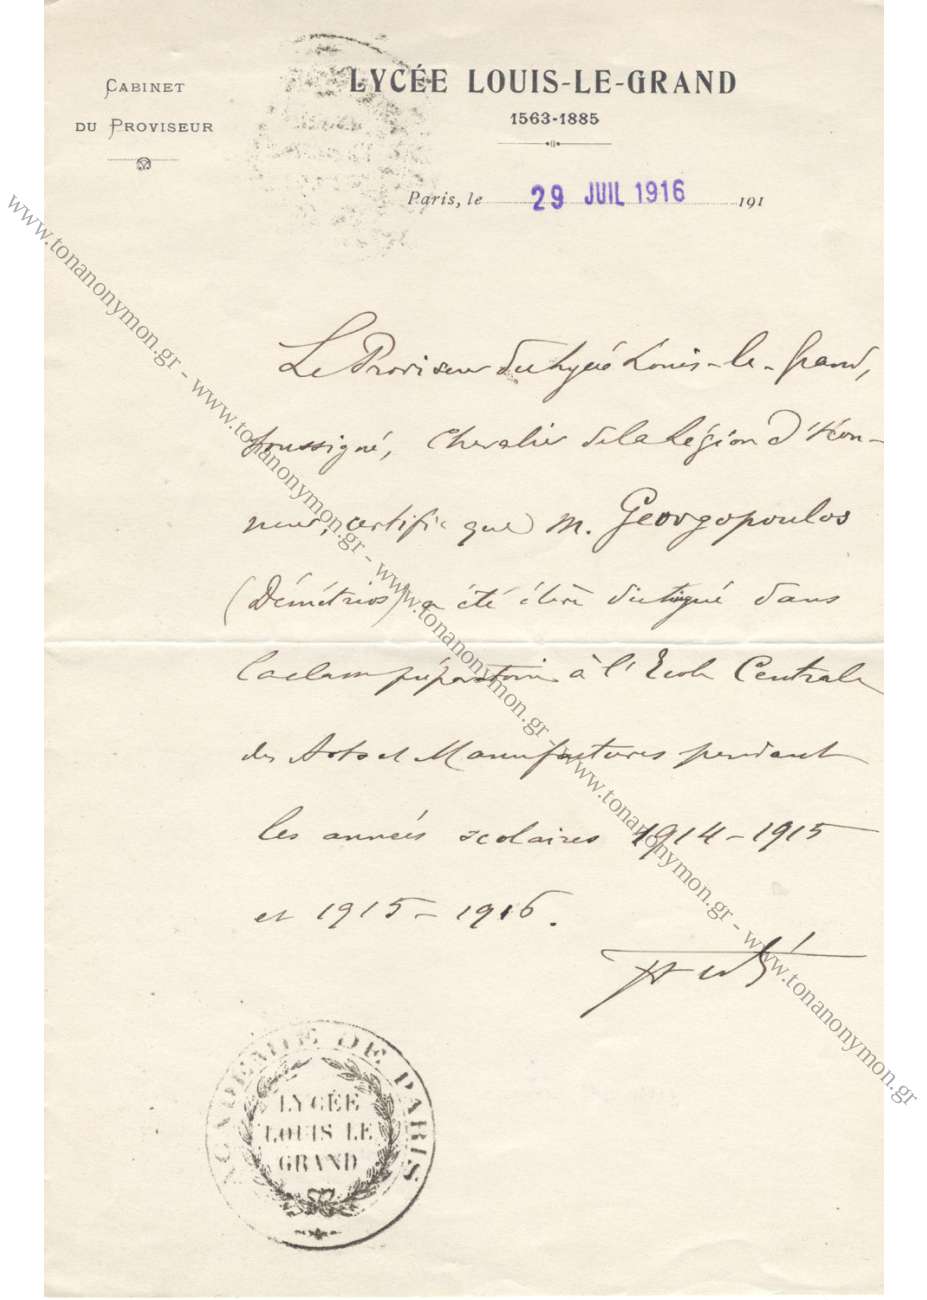 CABINET
DU PROVISEUR
LYCÉE LOUIS-LE-GRAND
1563-1885
Paris, le 29 JUIL 1916 191
Le Proviseur du Lycée Louis-le-Grand,
soussigné, Chevalier de la Légion d'Hon-
neur, certifie que M. Georgopoulos
(Démétrios) a été élève distingué dans
la classe préparatoire à l'Ecole Centrale
des Arts et Manufactures pendant
les années scolaires 1914-1915
et 1915-1916.
ACADEMIE DE PARIS
LYCÉE
LOUIS LE
GRAND
www.tonanonymon.gr - www.tonanonymon.gr - www.tonanonymon.gr - www.tonanonymon.gr - www.tonanonymon.gr